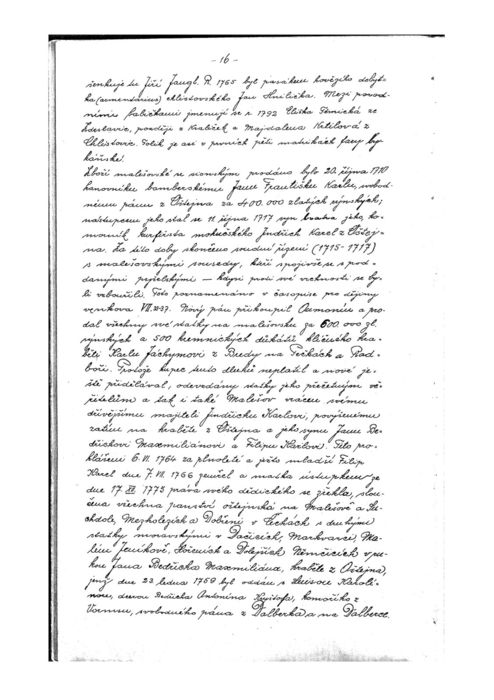 - 16 -
šenkuje tu Jiří Jangl. R. 1765 byl pasákem hovězího dobyt-
ka (armentarius) chlístovského Jan Hnilička. Mezi porod-
ními babičkami jmenují se r. 1792 Eliška Černická ze
Zdeslavic, později z Kralíček a Majdalena Ketilová z
Chlístovic. Tolik je asi v prvních pěti matrikách fary by-
káňské.
Zboží malešovské se sionským prodáno bylo 20. října 1710
kanovníku bamberskému Janu Františku Karlu, svobod-
nému pánu z Oštejna za 400.000 zlatých rýnských;
nástupcem jeho stal se 11. října 1717 syn bratra jeho, ko-
morník kurfirsta mohučského Jindřich Karel z Oštej-
na. Za této doby skončeno soudní řízení (1715-1717)
s malešovskými sousedy, kteří spojivše se s pod-
danými perštejnskými — kdysi proti své vrchnosti se by-
li vzbouřili. Toto poznamenáno v časopise pro dějiny
venkova VII. 237. Nový pán přikoupil Osmonice a pro-
dal všechny své statky na malešovsku za 600.000 zl.
rýnských a 500 kremnických dukátů klíčného hra-
běti Karlu Jáchymovi z Bredy na Tečkách a Rad-
boři. Protože kupec tento dluhů neplatil a nové je-
ště přidělával, odevzdány statky jeho přečetným vě-
řitelům a tak i také Malešov vrácen svému
dřívějšímu majiteli Jindřichu Karlovi, povýšenému
zatím na hraběte z Oštejna a jeho synu Janu Be-
drichovi Maxmiliánovi a Filipu Karlovi. Tito pro-
hlášeni 6. VI. 1764 za plnoleté a ježto mladší Filip
Karel dne 7. VII. 1766 zemřel a matka ústupkem ze
dne 17. XII 1773 práva svého dědického se zřekla, slou-
čena všechna panství oštejnská na Malešově a Su-
chdole, Mezholezích a Dobřeni v Čechách s druhými
statky moravskými v Dačicích, Markvarci, Ma-
lém Jeníkově, Slavicích a Dolejších Němčicích v ru-
kou Jana Bedřicha Maxmiliána, hraběte z Oštejna,
jenž dne 23 ledna 1759 byl oddán s Luisou Karoli-
nou, dcerou Bedřicha Antonína Kryštofa, komořího z
Wormsu, svobodného pána z Dalberka, a na Dalberce.